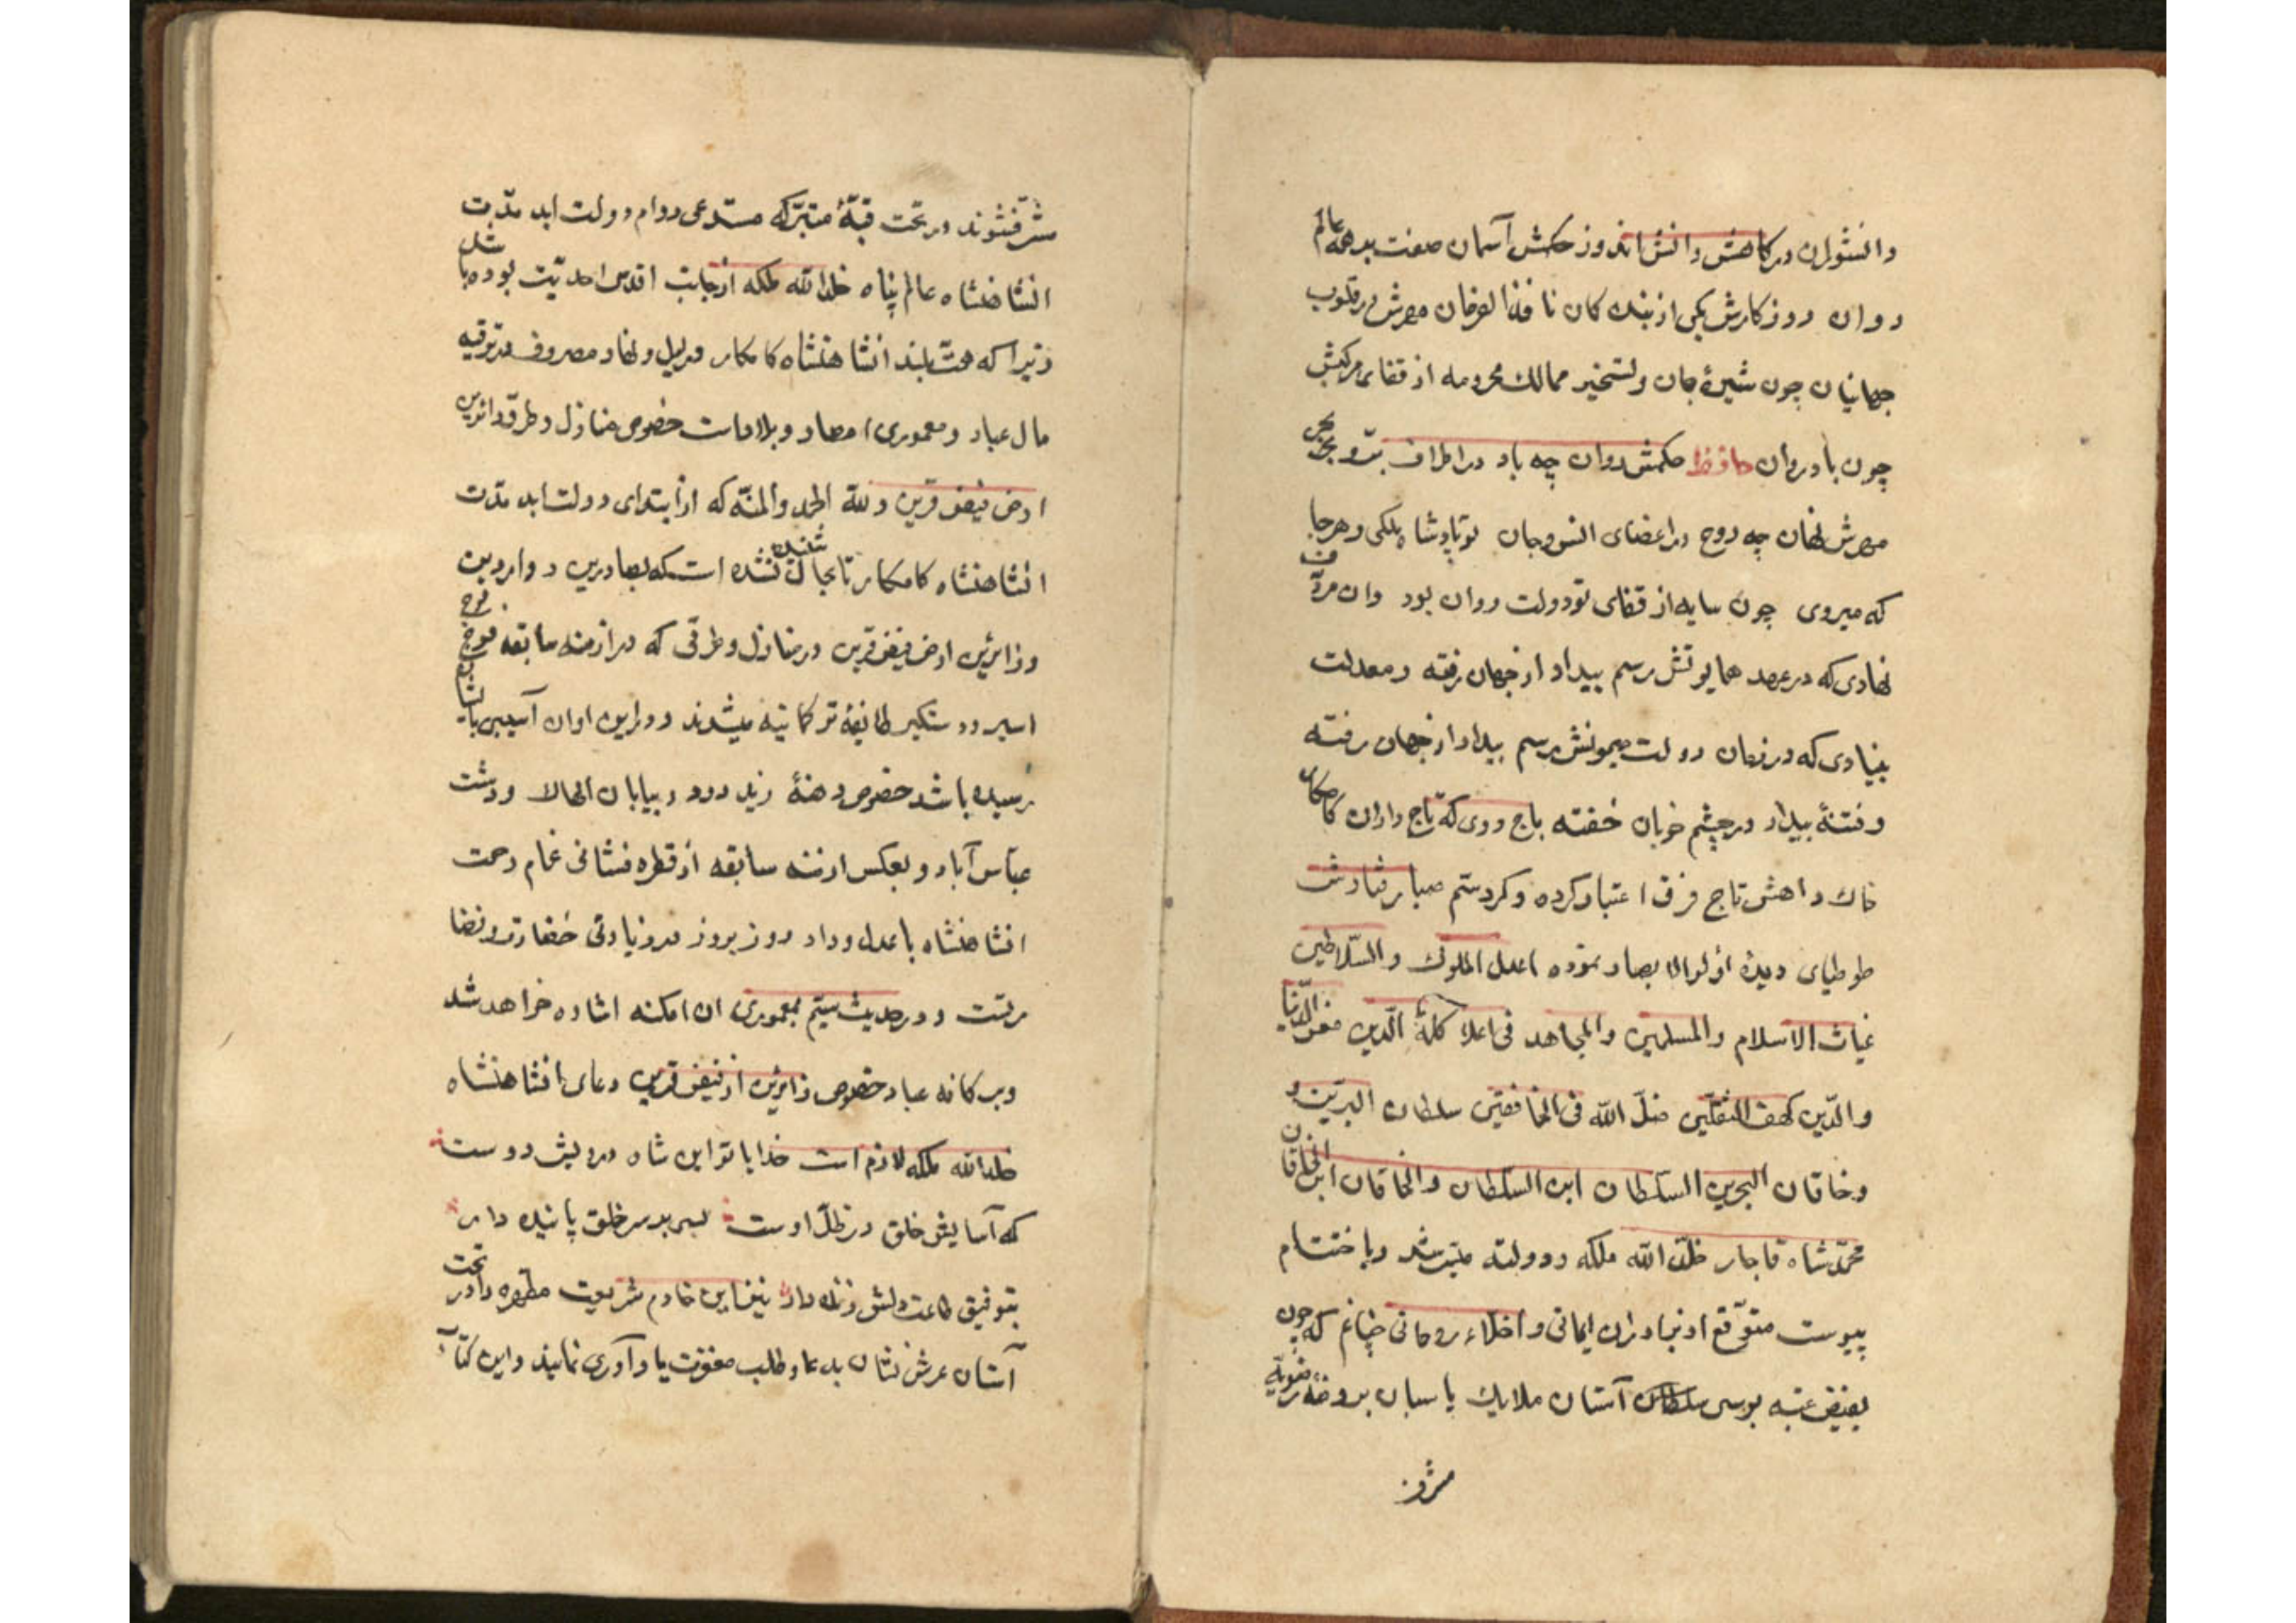 دانشوران در کاهش دانش اندوز حکمش آسمان صفت بدهمه عالم
روان و روزکارش یکی از بندکان نافذ الفرمان مهرش در قلوب
جهانیان چون شیرهٔ جان و تسخیر ممالک محروسه از قفای مرکبش
چون باد روان حافظ حکمش روان چه باد در اطراف بر و بحر
مهرش نهان چه روح در اعضای انس و جان تو پادشاه ملکی و هرجا
که میروی چون سایه از قفای تو دولت روان بود وان مروت
نهادی که در عهد همایونش رسم بیداد از جهان رفته و معدلت
بنیادی که در زمان دولت میمونش رسم بیداد از جهان رفته
و فتنهٔ بیدار در چشم خوبان خفته باج دوی که تاج داران کامکار
خاک راهش تاج فرق اعتبار کرده و کرد ستم صبا رفتارش
طوطیای دیدهٔ اولو الابصار نموده اعدل الملوک والسّلاطین
غیاث الاسلام والمسلمین والمجاهد فی اعلاء کلمهٔ الدّین مغر الدّنیا
والدّین کهف الثقلین ضلّ اللّه فی الخافقین سلطان البرّین و
وخاقان البحرین السلطان ابن السلطان والخاقان ابن الخاقان
محمّد شاه قاجار خلّد اللّه ملکه ودولته میسّر شد وباختتام
پیوست متوّقع از برادران ایمانی و اخلاء روحانی چنانم که چون
بفیض عتبه بوسی سلطان آستان ملایک پاسبان بروضه رضویه
مشرف
مشرّف شوند در تحت قبّهٔ متبرّکه مستدعی دوام دولت ابد مدّت
انشاهنشاه عالم پناه خلد اللّه ملکه از جانب اقدس احدیّت بوده باشند
زیرا که همّت بلند انشاهنشاه کامکار در لیل و نهار مصروف در ترفیه
حال عباد و معموری امصار و بلاد است خصوص منازل و طرق زائرین
ارض فیض قرین و للّه الحمد والمنّه که از ابتدای دولت ابد مدّت
انشاهنشاه کامکار تا بحال شنیده نشده است که بصادرین و واردین
و زائرین ارض فیض قرین در منازل و طرقی که در ازمنه سابقه فوج فوج
اسیر و دستکیر طایفهٔ ترکمانیه میشدند و در این اوان آسیبی بایشان
رسیده باشد خصوص دهنهٔ زیدر و در بیابان الهالا و دشت
عبّاس آباد و بعکس ازمنه سابقه از قطره فشانی غمام رحمت
انشاهنشاه با عدل و داد روز بروز در زیادتی خضارت و نضا
رتست و در حدیث سیّم بمعموری ان امکنه اشاره خواهد شد
وبر کافه عباد خصوص زائرین ارض فیض قرین دعای انشاهنشاه
خلد اللّه ملکه لازم است خدایا تو این شاه درویش دوست
که آسایش خلق در ظلّ اوست بسی بر سر خلق پاینده دار
بتوفیق طاعت دلش زنده دار نیز این خادم شریعت مطهره را در تحت
آستان عرش نشان بدعا و طلب مغفرت یادآوری نمایند و این کتاب